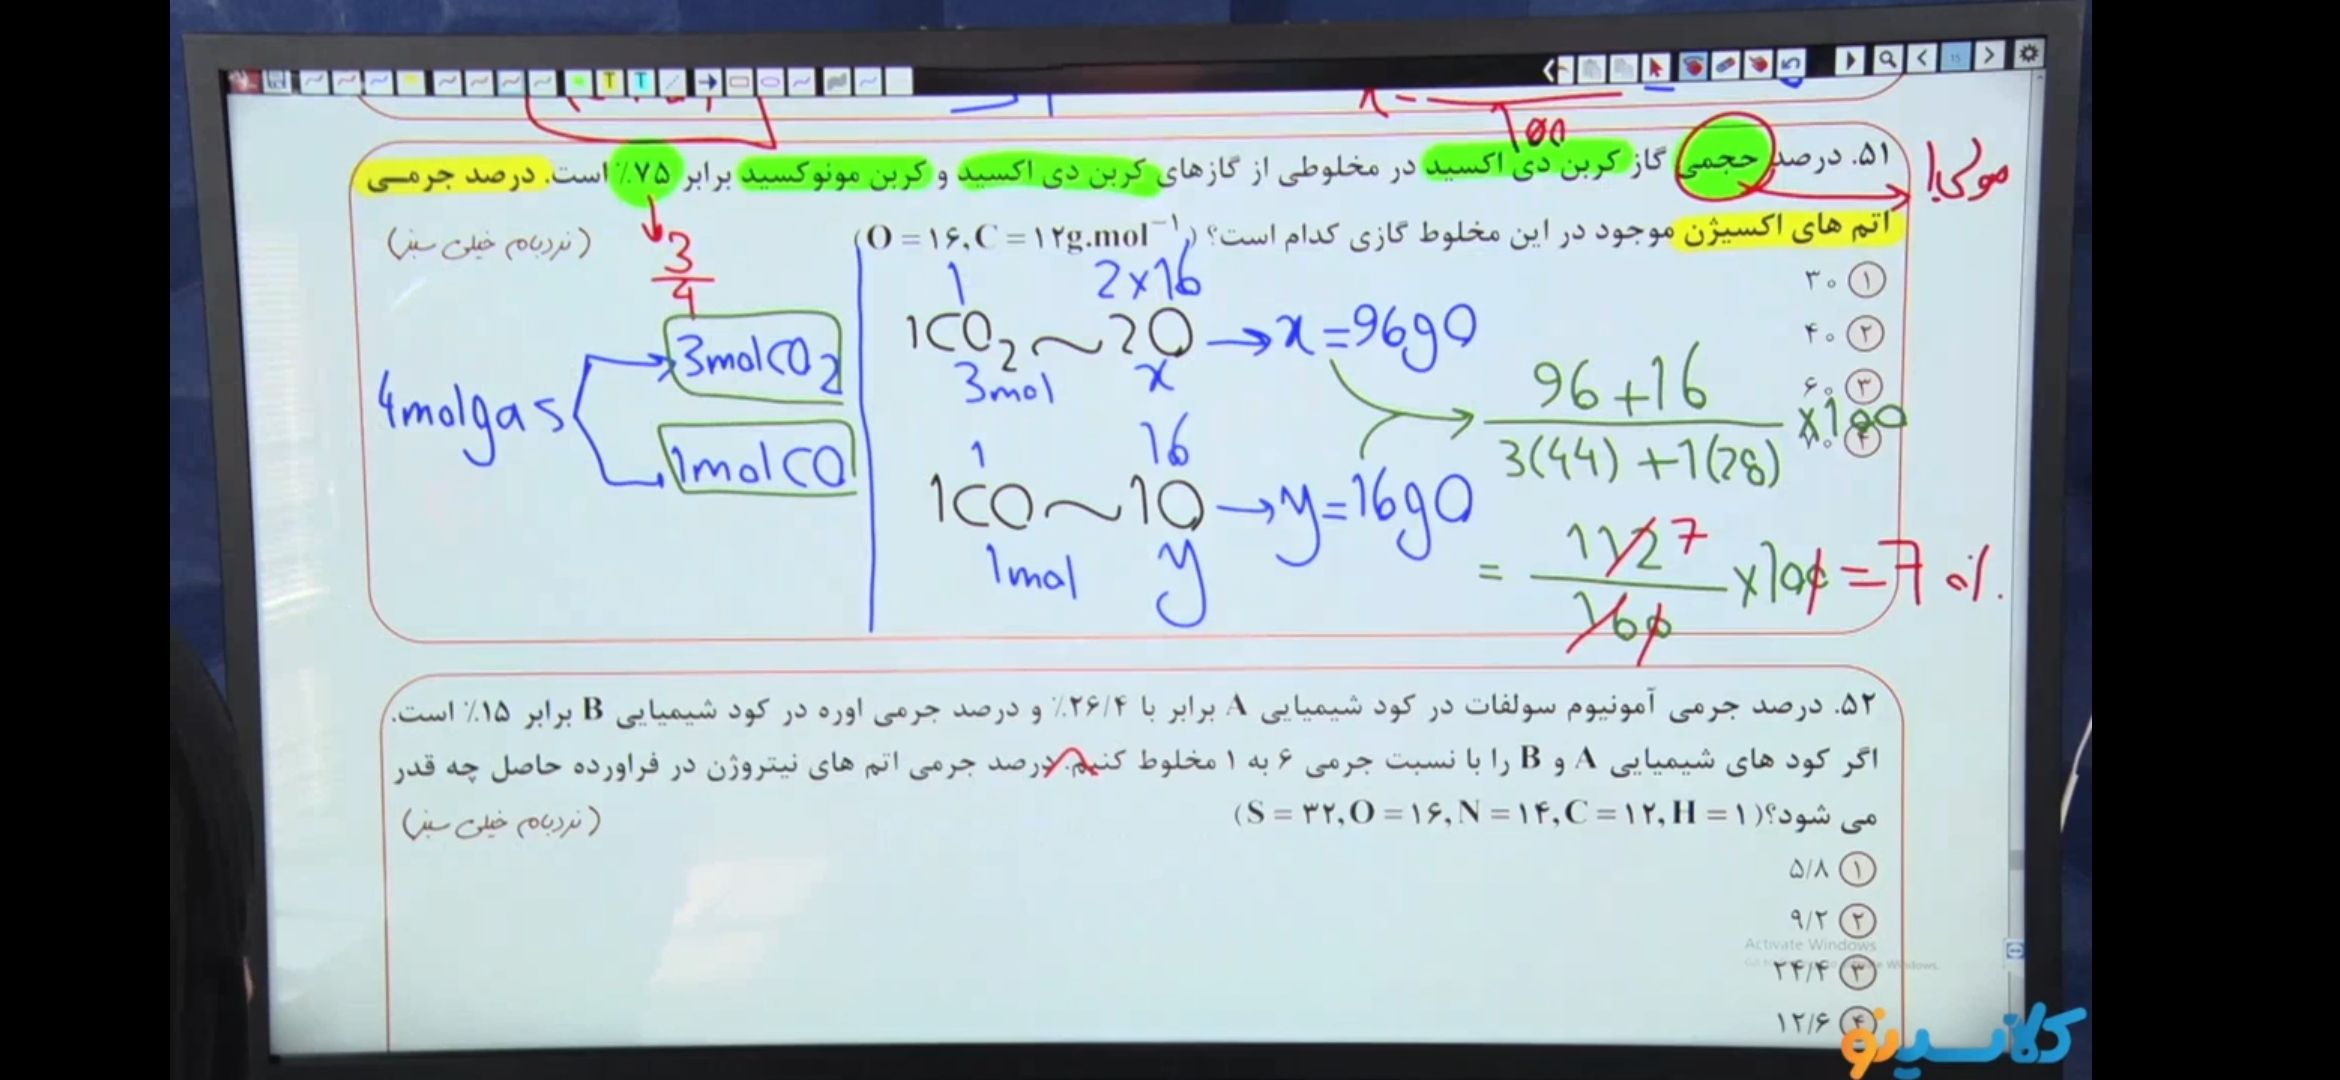 ۵۱. درصد حجمی گاز کربن دی اکسید در مخلوطی از گازهای کربن دی اکسید و کربن مونوکسید برابر ۷۵٪ است. درصد جرمی
مولی!
اتم های اکسیژن موجود در این مخلوط گازی کدام است؟ (O = ۱۶, C = ۱۲g.mol⁻¹)
(نردبام خیلی سبز)
3/4
① ۳۰
② ۴۰
③ ۶۰
④
4molgas
3molCO₂
1molCO
1 2×16
1CO₂ ~ 2O → x = 96gO
3mol x
1 16
1CO ~ 1O → y = 16gO
1mol y
96+16 / 3(44)+1(28) ×100
= 112 7 / 160 ×100 = 70%
۵۲. درصد جرمی آمونیوم سولفات در کود شیمیایی A برابر با ۲۶/۴٪ و درصد جرمی اوره در کود شیمیایی B برابر ۱۵٪ است.
اگر کود های شیمیایی A و B را با نسبت جرمی ۶ به ۱ مخلوط کنیم. درصد جرمی اتم های نیتروژن در فراورده حاصل چه قدر
می شود؟(S = ۳۲, O = ۱۶, N = ۱۴, C = ۱۲, H = ۱)
(نردبام خیلی سبز)
① ۵/۸
② ۹/۲
Activate Windows
③ ۲۴/۴
④ ۱۲/۶
کلاسینو